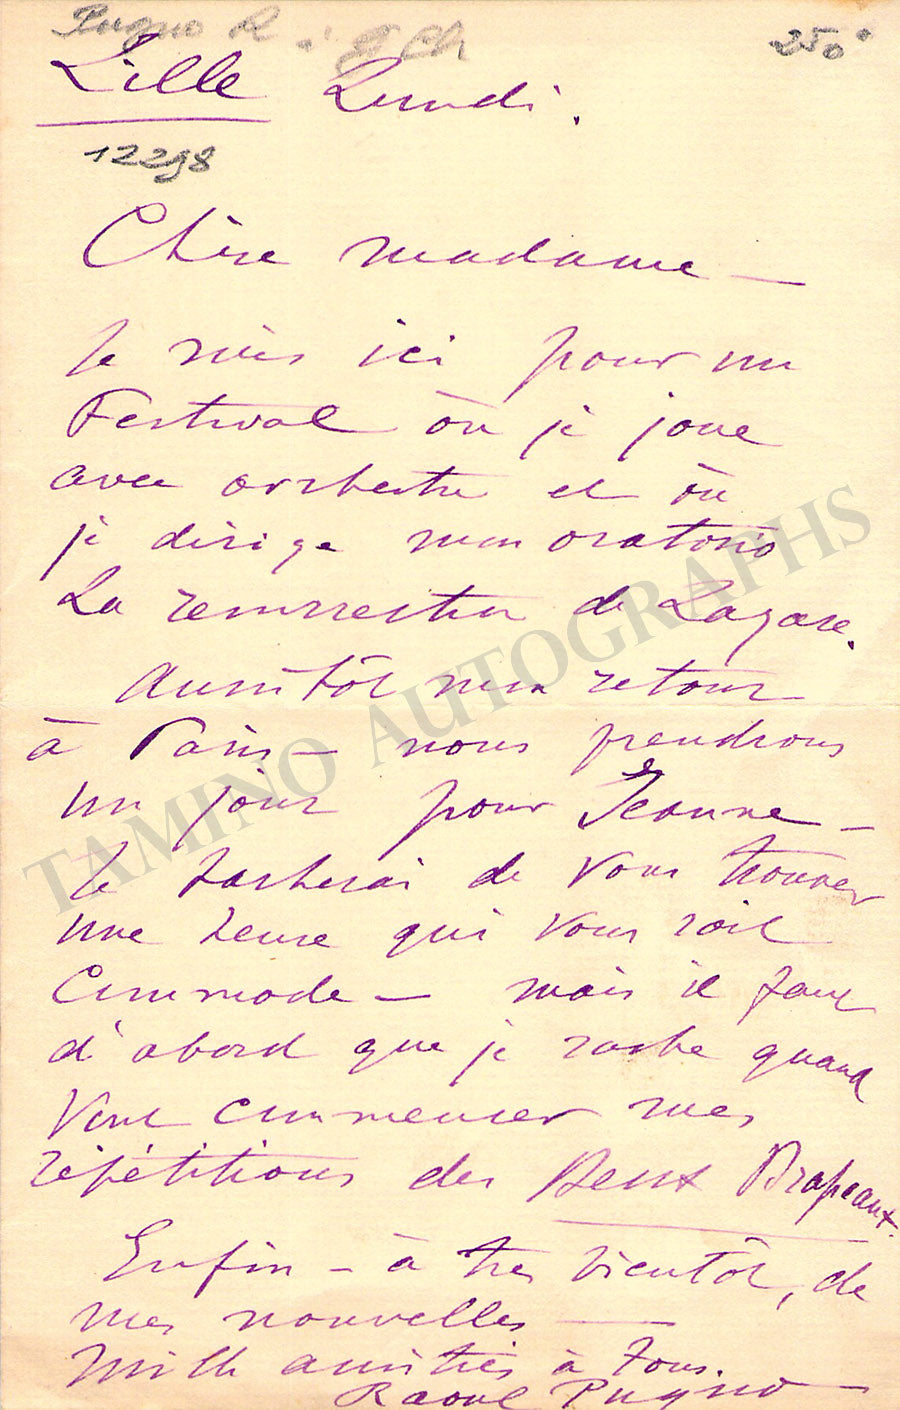 Pugno R
250
Lille Lundi.
12298
Chère madame —
Je suis ici pour un
Festival où je joue
avec orchestre et où
je dirige mon oratorio
La résurrection de Lazare.
Aussitôt mon retour
à Paris — nous prendrons
un jour pour Jeanne —
Je tacherai de vous trouver
une heure qui vous soit
Commode — mais il faut
d'abord que je sache quand
Vont commencer mes
répétitions des Deux Drapeaux.
Enfin — à très bientôt, de
mes nouvelles —
Mille amitiés à tous.
Raoul Pugno
TAMINO AUTOGRAPHS